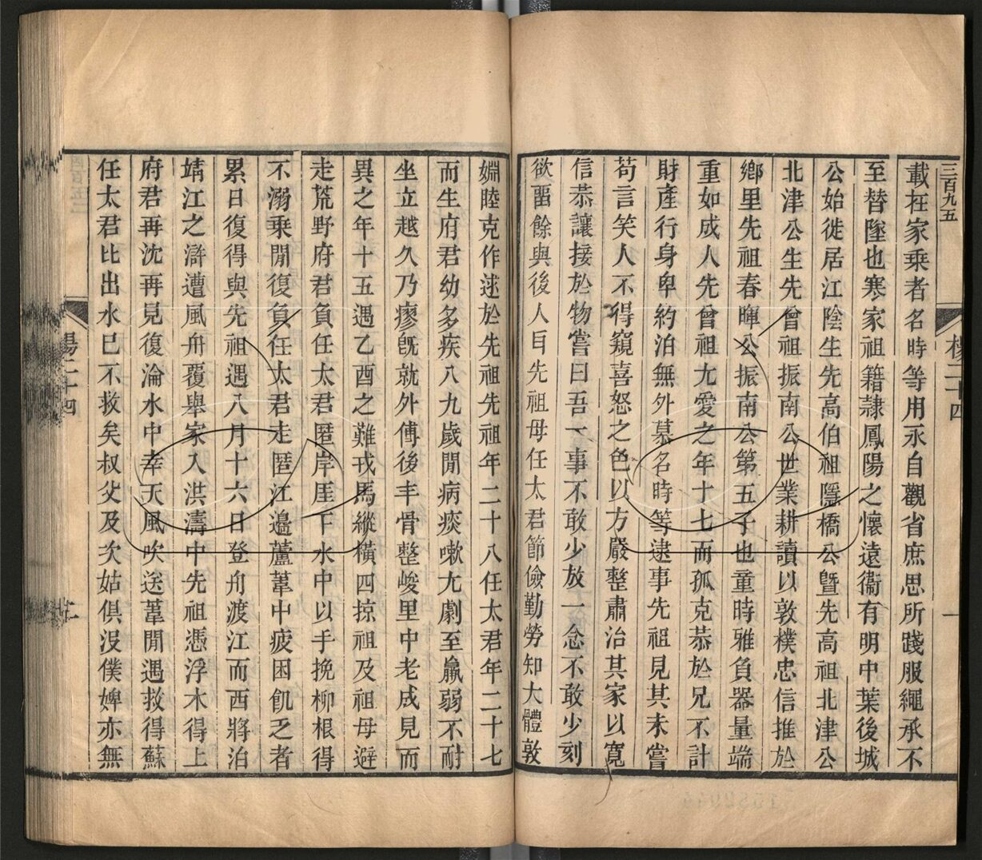 三百九五
載在家乘者名時等用永自觀省庶思所踐服繩承不
至替墜也寒家祖籍隷鳳陽之懷遠衞有明中葉後城
公始徙居江陰生先高伯祖隱橋公曁先高祖北津公
北津公生先曾祖振南公世業耕讀以敦樸忠信推於
鄉里先祖春暉公振南公第五子也童時雅負器量端
重如成人先曾祖尤愛之年十七而孤克恭於兄不計
財產行身卑約泊無外慕名時等逮事先祖見其未嘗
苟言笑人不得窺喜怒之色以方嚴整肅治其家以寬
信恭讓接於物嘗曰吾一事不敢少放一念不敢少刻
欲畱餘與後人目先祖母任太君節儉勤勞知大體敦
楊二十四
一
婣睦克作逑於先祖先祖年二十八任太君年二十七
而生府君幼多疾八九歲閒病痰嗽尤劇至羸弱不耐
坐立越久乃瘳旣就外傅後丰骨整峻里中老成見而
異之年十五遇乙酉之難戎馬縱橫四掠祖及祖母避
走荒野府君負任太君匿岸厓下水中以手挽柳根得
不溺乘閒復負任太君走匿江邉蘆葦中疲困飢乏者
累日復得與先祖遇八月十六日登舟渡江而西將泊
靖江之滸遭風舟覆舉家入洪濤中先祖憑浮木得上
府君再沈再見復淪水中幸天風吹送葦閒遇救得蘇
任太君比出水已不救矣叔父及次姑俱沒僕婢亦無
楊二十四